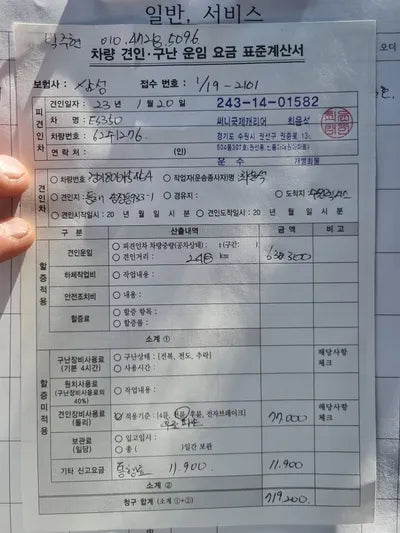 일반, 서비스
010.4728.5096
차량 견인·구난 운임 요금 표준계산서
보험사 : 삼성 접수 번호 : 1/19-2101
피견인차
견인일자 : 23 년 1 월 20 일
243-14-01582
차 명 : ES350
써니국제캐리어 최윤석
차량번호 : 62너1276
경기도 수원시 권선구
연 락 처 : (인)
운 수 개별화물
견인차
차량번호 : 작업자(운송종사자)명 :
견인지 : 경유지 : 도착지 :
견인시작일시 : 20 년 월 일 시 분 견인도착일시 : 20 년 월 일 시 분
구 분 산출내역 금 액 비 고
할증적용
견인운임
피견인차 차량중량(공차상태) : t (구간: )
견인거리 : 248 km 630,300
하체작업비 작업내용 :
안전조치비 내용 :
할증료
할증 항목 :
할증률 :
소계 ①
할증미적용
구난장비사용료 (기본 4시간)
구난상태 : [전복, 전도, 추락]
사용시간 :
해당사항 체크
원치사용료 (구난장비사용료의 40%)
작업내용 :
견인장비사용료 (돌리)
적용기준 : [4륜, 전륜, 후륜, 전자브레이크]
77,000
해당사항 체크
보관료 (일당)
입고일시 :
총 ( )일간 보관
기타 신고요금 통행료 11,900 11,900
소계 ②
청구 합계 (소계 ①+②) 719,200